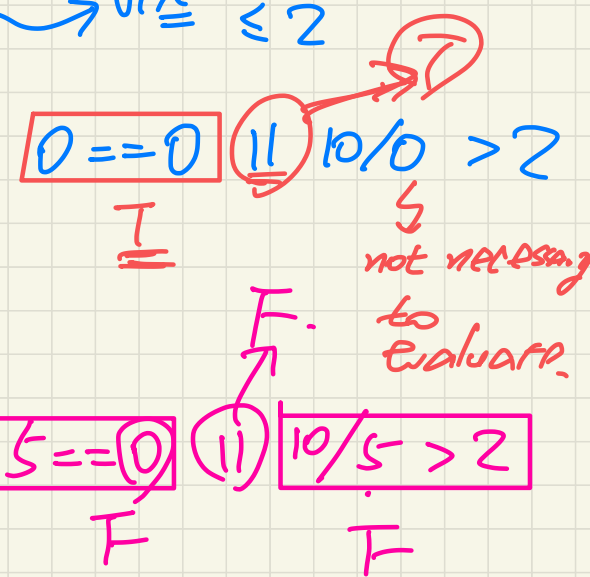 ≤ 2
T
0 == 0 || 10/0 > 2
T
not necessary
to
evaluate.
F.
5 == 0 || 10/5 > 2
F F